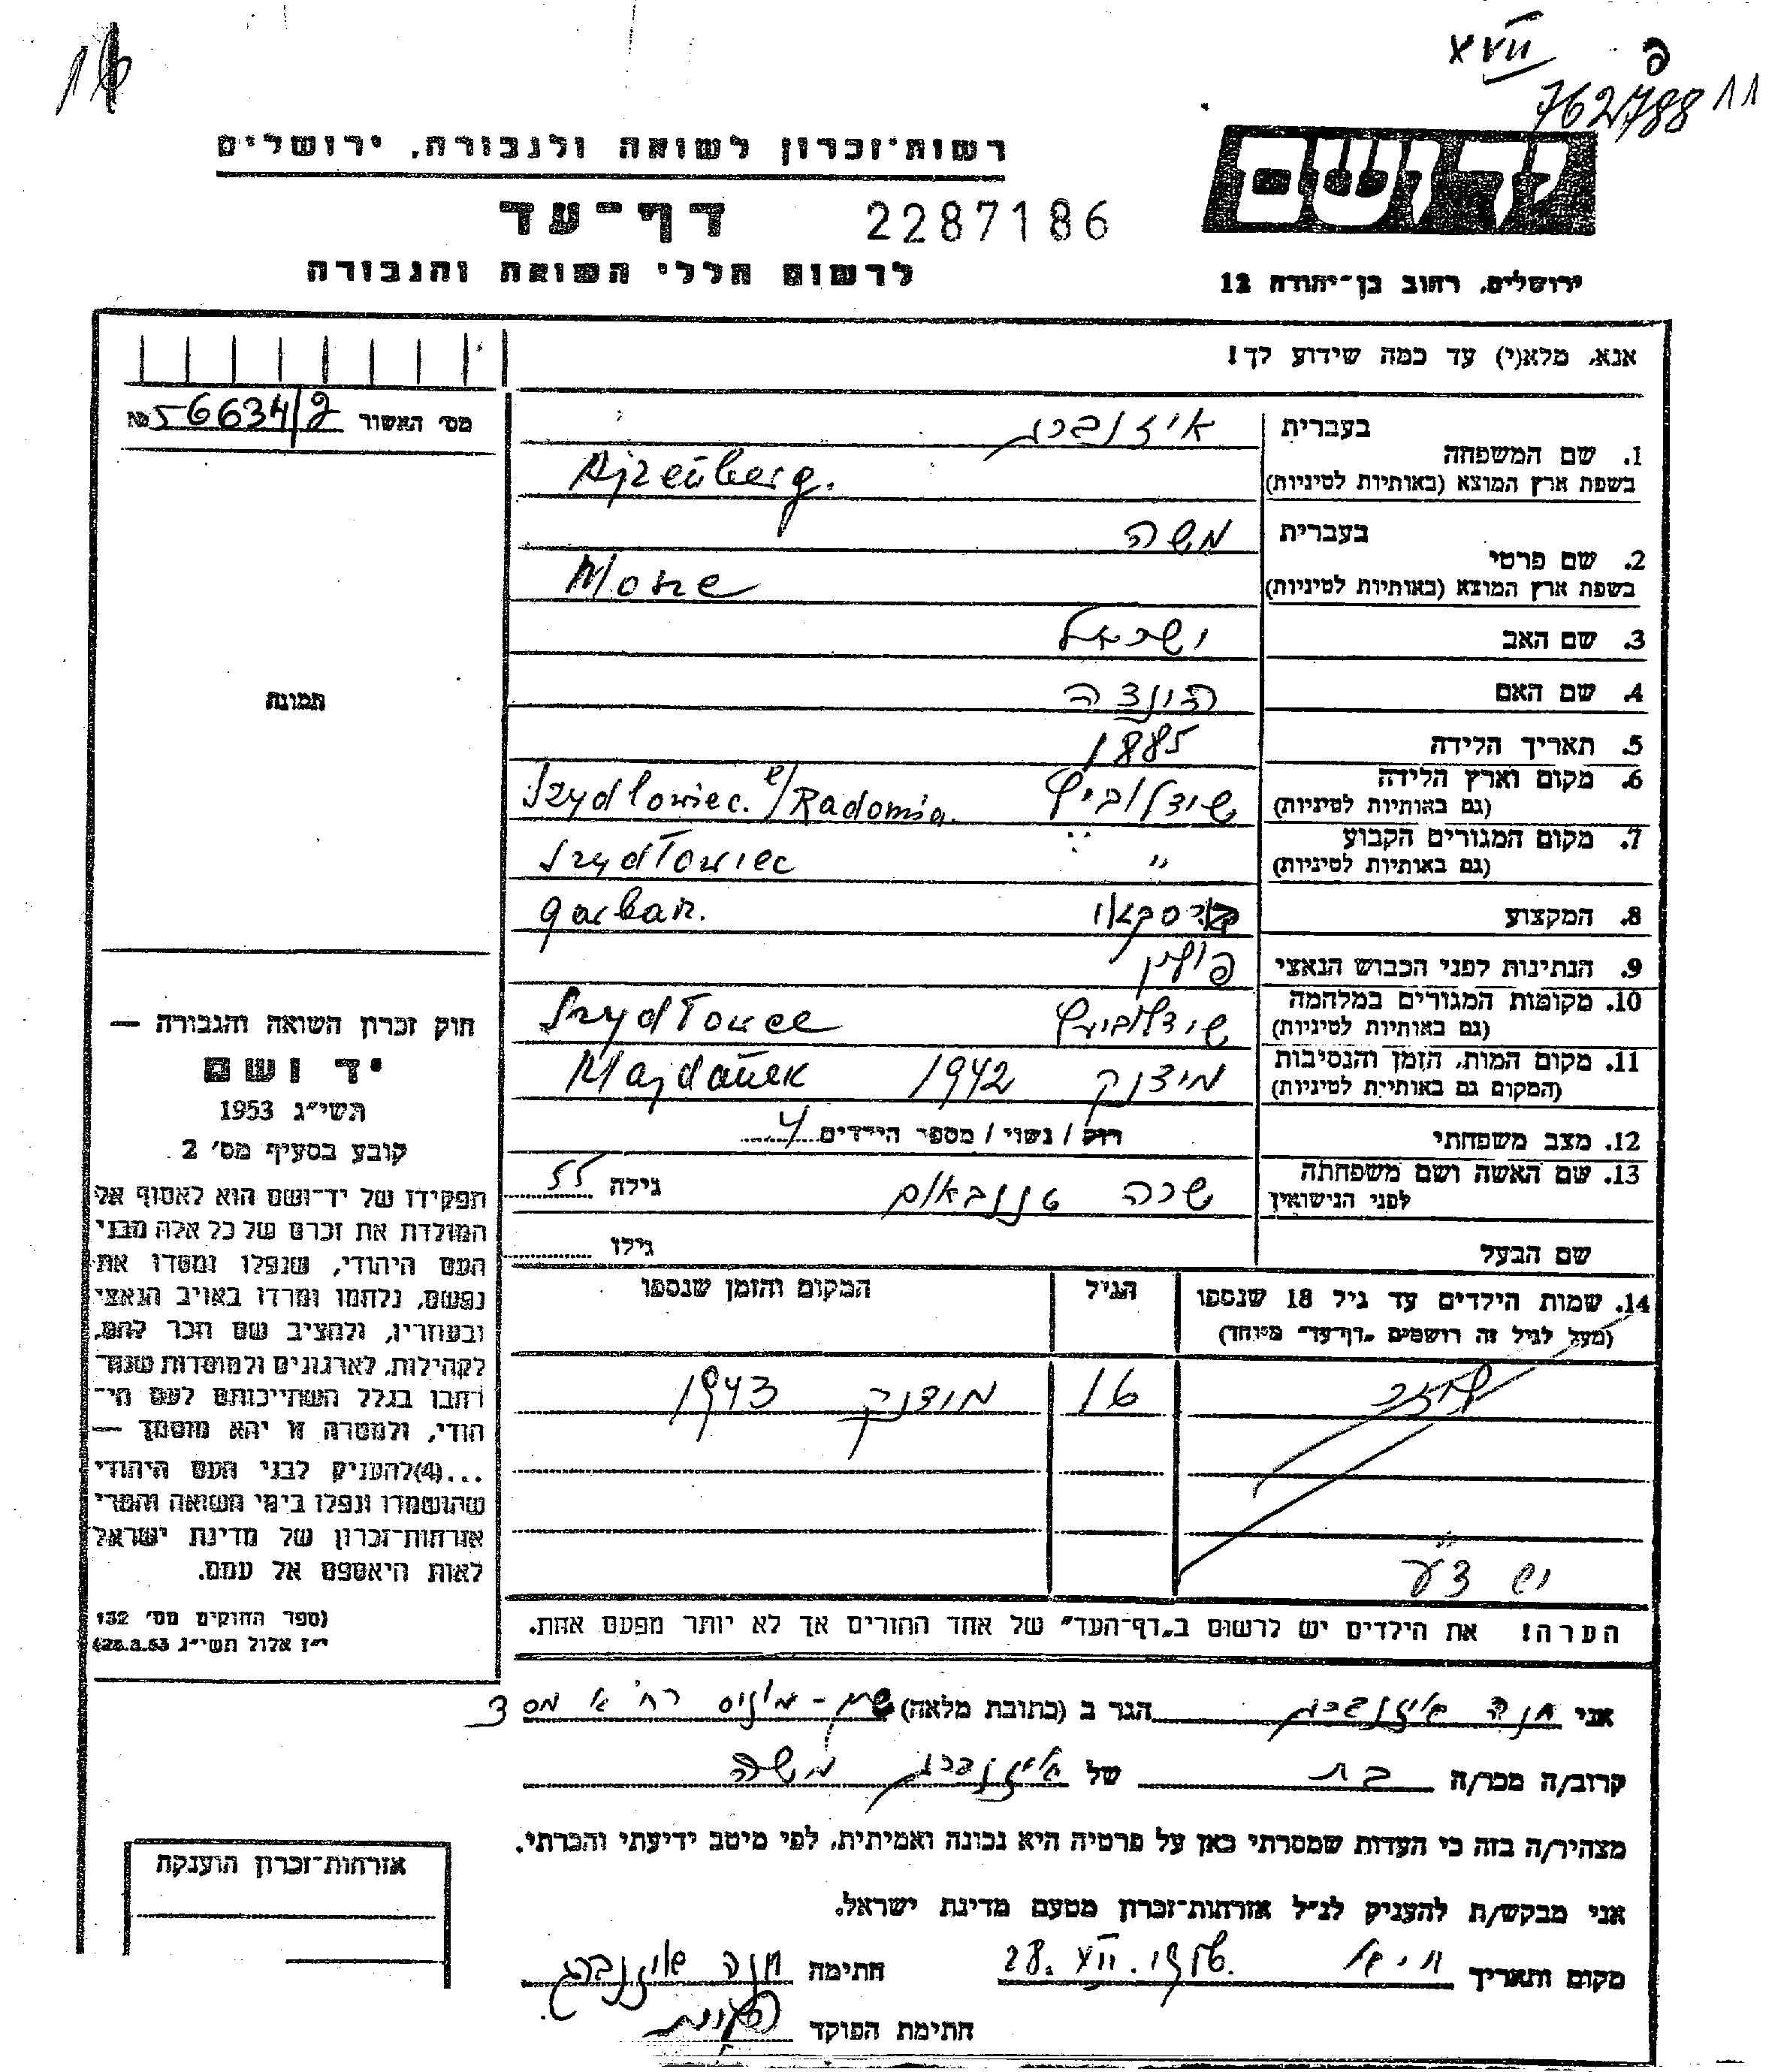 XVII
פ
762788 11
16
רשות־זכרון לשואה ולגבורה, ירושלים
יד ושם
דף־עד 2287186
לרשום חללי השואה והגבורה
ירושלים, רחוב בן־יהודה 12
אנא, מלא(י) עד כמה שידוע לך!
מס' האשור 56634/2 №
1. שם המשפחה
בעברית איזנברג
בשפת ארץ המוצא (באותיות לטיניות) Ajzenberg.
2. שם פרטי
בעברית משה
בשפת ארץ המוצא (באותיות לטיניות) Mosze
3. שם האב ישראל
4. שם האם הינצה
5. תאריך הלידה 1885
6. מקום וארץ הלידה
(גם באותיות לטיניות) שידלוביץ Szydlowiec. e/Radomia.
7. מקום המגורים הקבוע
(גם באותיות לטיניות) " Szydłowiec
8. המקצוע בורסקאי garbarz.
9. הנתינות לפני הכבוש הנאצי פולין
10. מקומות המגורים במלחמה
(גם באותיות לטיניות) שידלוביץ Szydłowec
11. מקום המות, הזמן והנסיבות
(המקום גם באותיות לטיניות) מידנק 1942 Majdanek
12. מצב משפחתי רוק / נשוי / מספר הילדים 4
13. שם האשה ושם משפחתה
לפני הנישואין שרה טננבאום גילה 55
שם הבעל גילו
14. שמות הילדים עד גיל 18 שנספו הגיל המקום והזמן שנספו
(מעל לגיל זה רושמים „דף־עד" מיוחד)
16 מידנק 1943
יש ד"ע
הערה! את הילדים יש לרשום ב„דף־העד" של אחד ההורים אך לא יותר מפעם אחת.
תמונה
חוק זכרון השואה והגבורה —
יד ושם
תשי"ג 1953
קובע בסעיף מס' 2
תפקידו של יד־ושם הוא לאסוף אל
המולדת את זכרם של כל אלה מבני
העם היהודי, שנפלו ומסרו את
נפשם, נלחמו ומרדו באויב הנאצי
ובעוזריו, ולהציב שם וזכר להם,
לקהילות, לארגונים ולמוסדות שנח־
רבו בגלל השתייכותם לעם הי־
הודי, ולמטרה זו יהא מוסמך —
...(4) להעניק לבני העם היהודי
שהושמדו ונפלו בימי השואה והמרי
אזרחות־זכרון של מדינת ישראל
לאות היאספם אל עמם.
(ספר החוקים מס' 132
י"ז אלול תשי"ג 28.8.53)
אני חנה איזנברג הגר ב (כתובת מלאה) שיך-מוניס רח' א מס 3
קרוב/ה מכר/ה בת של איזנברג משה
מצהיר/ה בזה כי העדות שמסרתי כאן על פרטיה היא נכונה ואמיתית, לפי מיטב ידיעתי והכרתי.
אני מבקש/ת להעניק לנ"ל אזרחות־זכרון מטעם מדינת ישראל.
מקום ותאריך 28. XII. 1956. חתימה חנה איזנברג
חתימת הפוקד
אזרחות־זכרון הוענקה